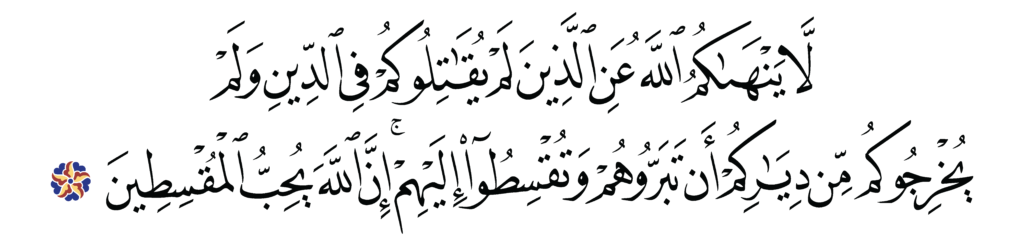 لَّا يَنْهَىٰكُمُ ٱللَّهُ عَنِ ٱلَّذِينَ لَمْ يُقَـٰتِلُوكُمْ فِى ٱلدِّينِ وَلَمْ
يُخْرِجُوكُم مِّن دِيَـٰرِكُمْ أَن تَبَرُّوهُمْ وَتُقْسِطُوٓا۟ إِلَيْهِمْ ۚ إِنَّ ٱللَّهَ يُحِبُّ ٱلْمُقْسِطِينَ